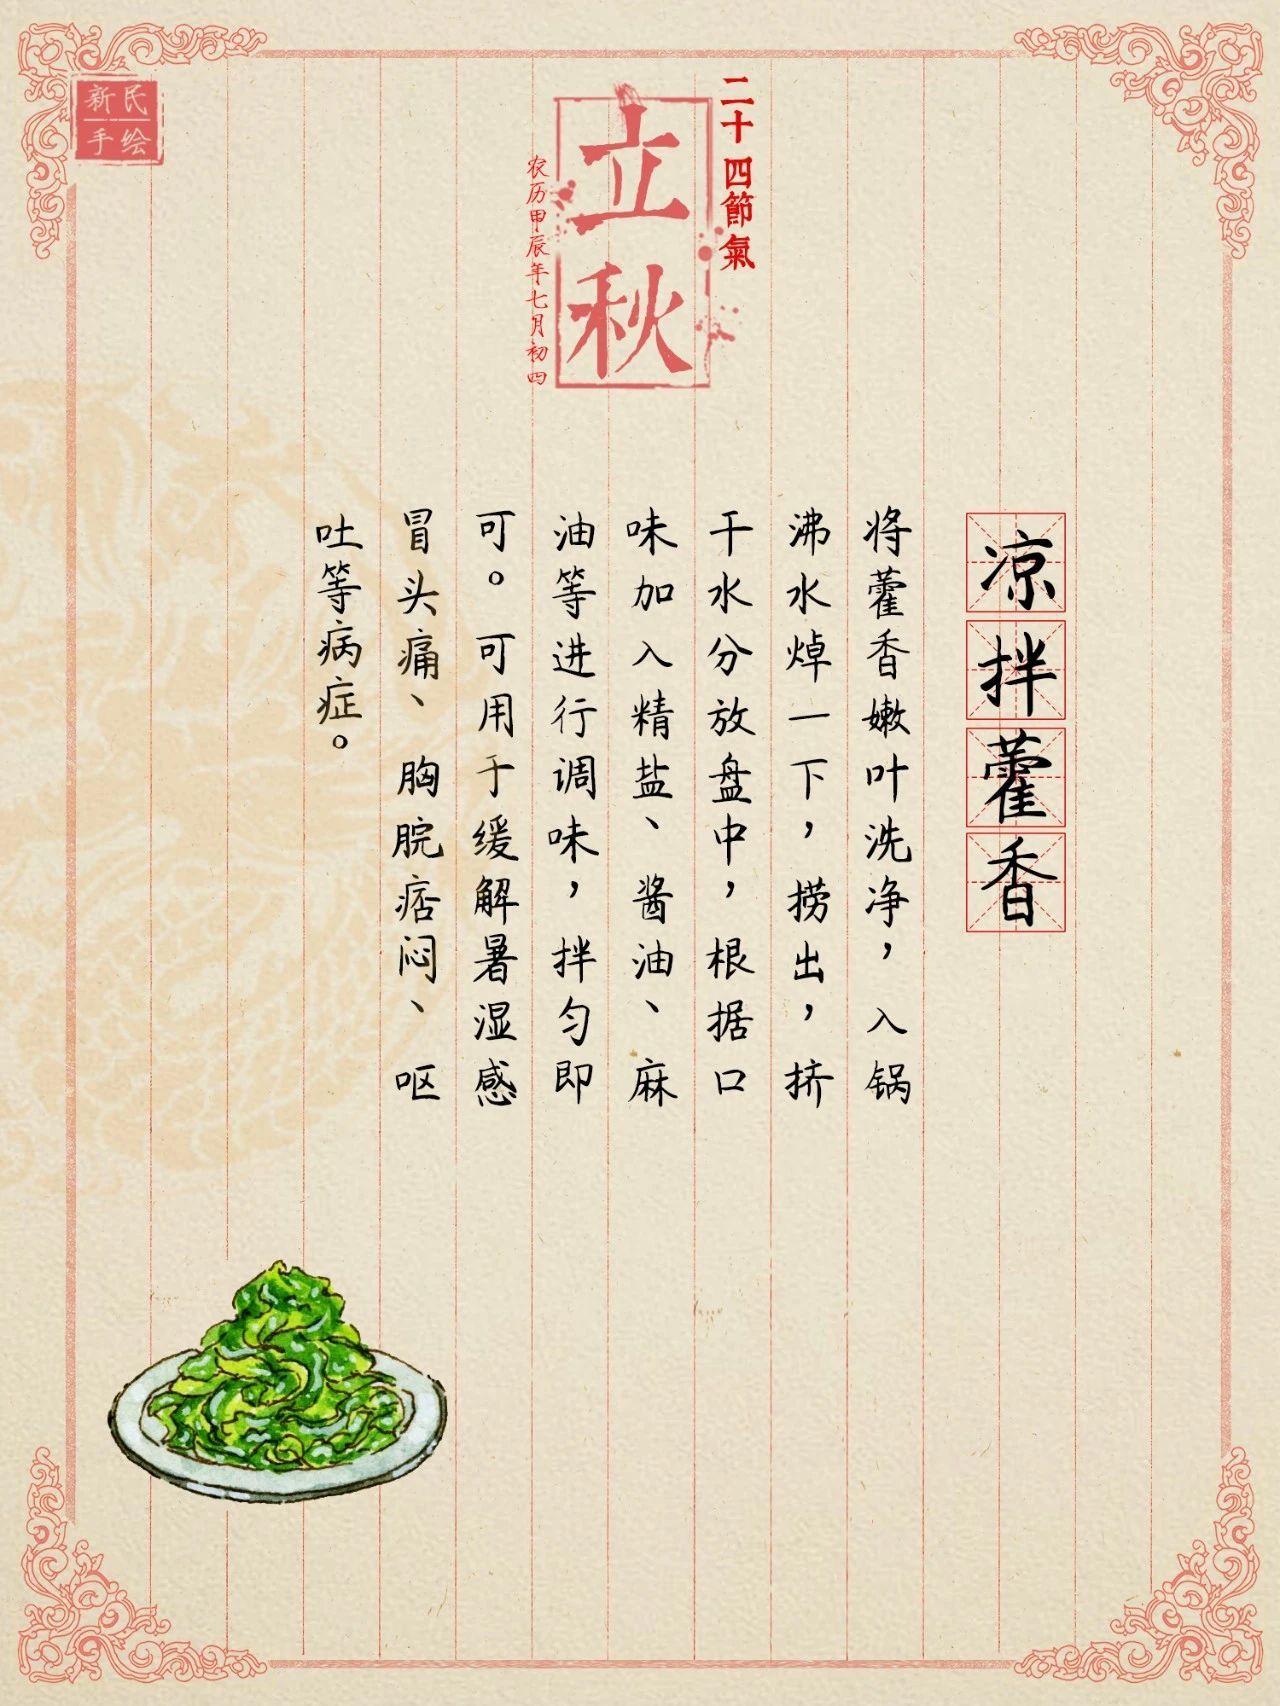 新民
手绘
二十四節氣
立秋
农历甲辰年七月初四
凉拌藿香
将藿香嫩叶洗净，入锅
沸水焯一下，捞出，挤
干水分放盘中，根据口
味加入精盐、酱油、麻
油等进行调味，拌匀即
可。可用于缓解暑湿感
冒头痛、胸脘痞闷、呕
吐等病症。